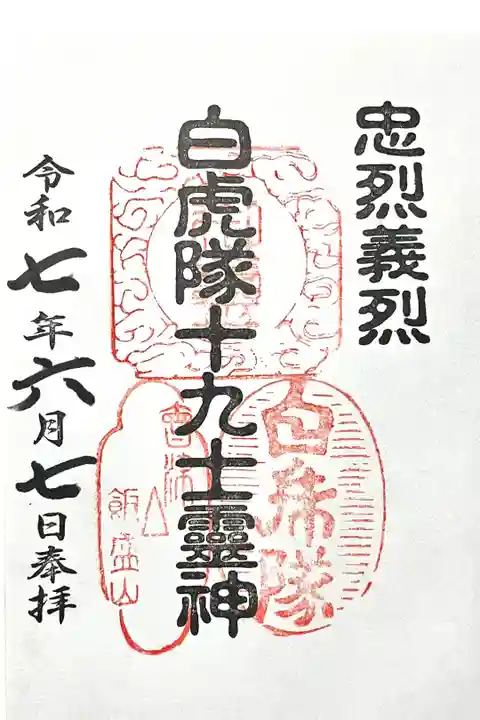 忠烈義烈
白虎隊十九士霊神
令和七年六月七日奉拝
白虎隊
會津
飯盛山